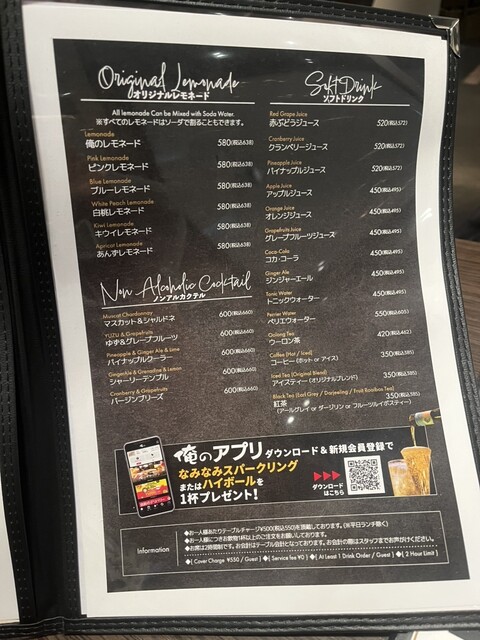 Original Lemonade
オリジナルレモネード
All lemonade Can be Mixed with Soda Water.
※すべてのレモネードはソーダで割ることもできます。
Lemonade
俺のレモネード 580(税込638)
Pink Lemonade
ピンクレモネード 580(税込638)
Blue Lemonade
ブルーレモネード 580(税込638)
White Peach Lemonade
白桃レモネード 580(税込638)
Kiwi Lemonade
キウイレモネード 580(税込638)
Apricot Lemonade
あんずレモネード 580(税込638)
Non Alcoholic Cocktail
ノンアルカクテル
Muscat Chardonnay
マスカット&シャルドネ 600(税込660)
YUZU & Grapefruits
ゆず&グレープフルーツ 600(税込660)
Pineapple & Ginger Ale & Lime
パイナップルクーラー 600(税込660)
GingerAle & Grenadine & Lemon
シャーリーテンプル 600(税込660)
Cranberry & Grapefruits
バージンブリーズ 600(税込660)
Soft Drink
ソフトドリンク
Red Grape Juice
赤ぶどうジュース 520(税込572)
Cranberry Juice
クランベリージュース 520(税込572)
Pineapple Juice
パイナップルジュース 520(税込572)
Apple Juice
アップルジュース 450(税込495)
Orange Juice
オレンジジュース 450(税込495)
Grapefruits Juice
グレープフルーツジュース 450(税込495)
Coca-Cola
コカ・コーラ 450(税込495)
Ginger Ale
ジンジャーエール 450(税込495)
Tonic Water
トニックウォーター 450(税込495)
Perrier Water
ペリエウォーター 550(税込605)
Oolong Tea
ウーロン茶 420(税込462)
Coffee (Hot / Iced)
コーヒー (ホット or アイス) 350(税込385)
Iced Tea (Original Blend)
アイスティー (オリジナルブレンド) 350(税込385)
Black Tea (Earl Grey / Darjeeling / Fruit Rooibos Tea)
紅茶 350(税込385)
(アールグレイ or ダージリン or フルーツルイボスティー)
俺のアプリ ダウンロード&新規会員登録で
なみなみスパークリング
またはハイボールを
1杯プレゼント!
ダウンロード
はこちら
Information
◆お一人様あたりテーブルチャージ¥500(税込550)を頂戴しております。(※平日ランチ除く)
◆お一人様につきお飲物1杯以上のご注文をお願いしております。
◆お席は2時間制です。お会計はテーブル会計となっております。お会計の際はスタッフまでお声がけください。
◆[ Cover Charge ¥550 / Guest ] ◆[ Service fee ¥0 ] ◆[ At Least 1 Drink Order / Guest ] ◆[ 2 Hour Limit ]